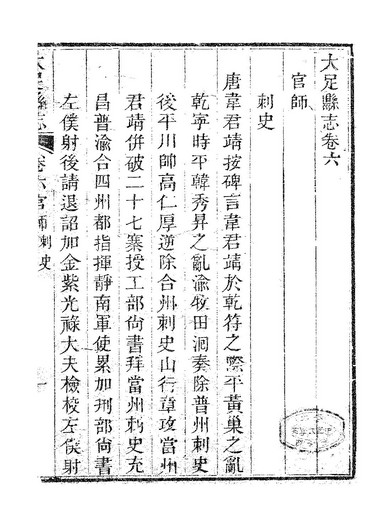 大足縣志卷六
官師
刺史
唐韋君靖按碑言韋君靖於乾符之際平黃巢之亂
乾寧時平韓秀昇之亂渝牧田洄奏除普州刺史
後平川帥高仁厚逆除合州刺史山行章攻當州
君靖併破二十七寨授工部尚書拜當州刺史充
昌普渝合四州都指揮靜南軍使累加刑部尚書
左僕射後請退詔加金紫光祿大夫檢校左僕射
大足縣志
卷六官師 刺史
一